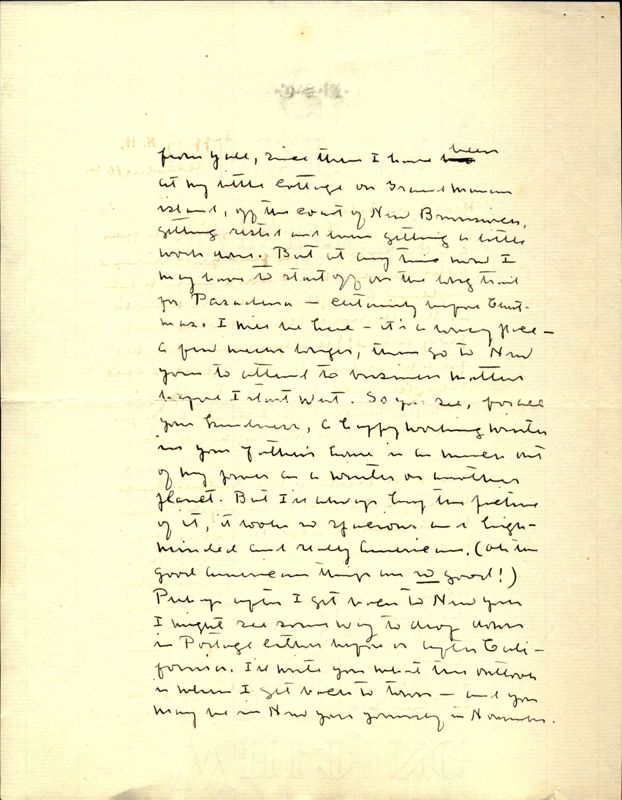 from you all, since then I have been
at my little cottage on Grand Manan
island, off the coast of New Brunswick,
getting rested and even getting a little
work done. But at any time now I
may have to start off on the long trail
for Pasadena — certainly before Christ-
mas. I will be here — it's a lovely place —
a few weeks longer, then go to New
York to attend to business matters
before I start West. So you see, for all
your kindness, a happy working winter
in your father's home is as much out
of my power as a winter on another
planet. But I'll always keep the picture
of it, it looks so spacious and high-
minded and really American. (Oh the
good American things are so good!)
Perhaps after I get back to New York
I might see some way to drop down
in Portage either before or after Cali-
fornia. I'll write you what the outlook
is when I get back to town — and you
may be in New York yourself in November.
N. H.